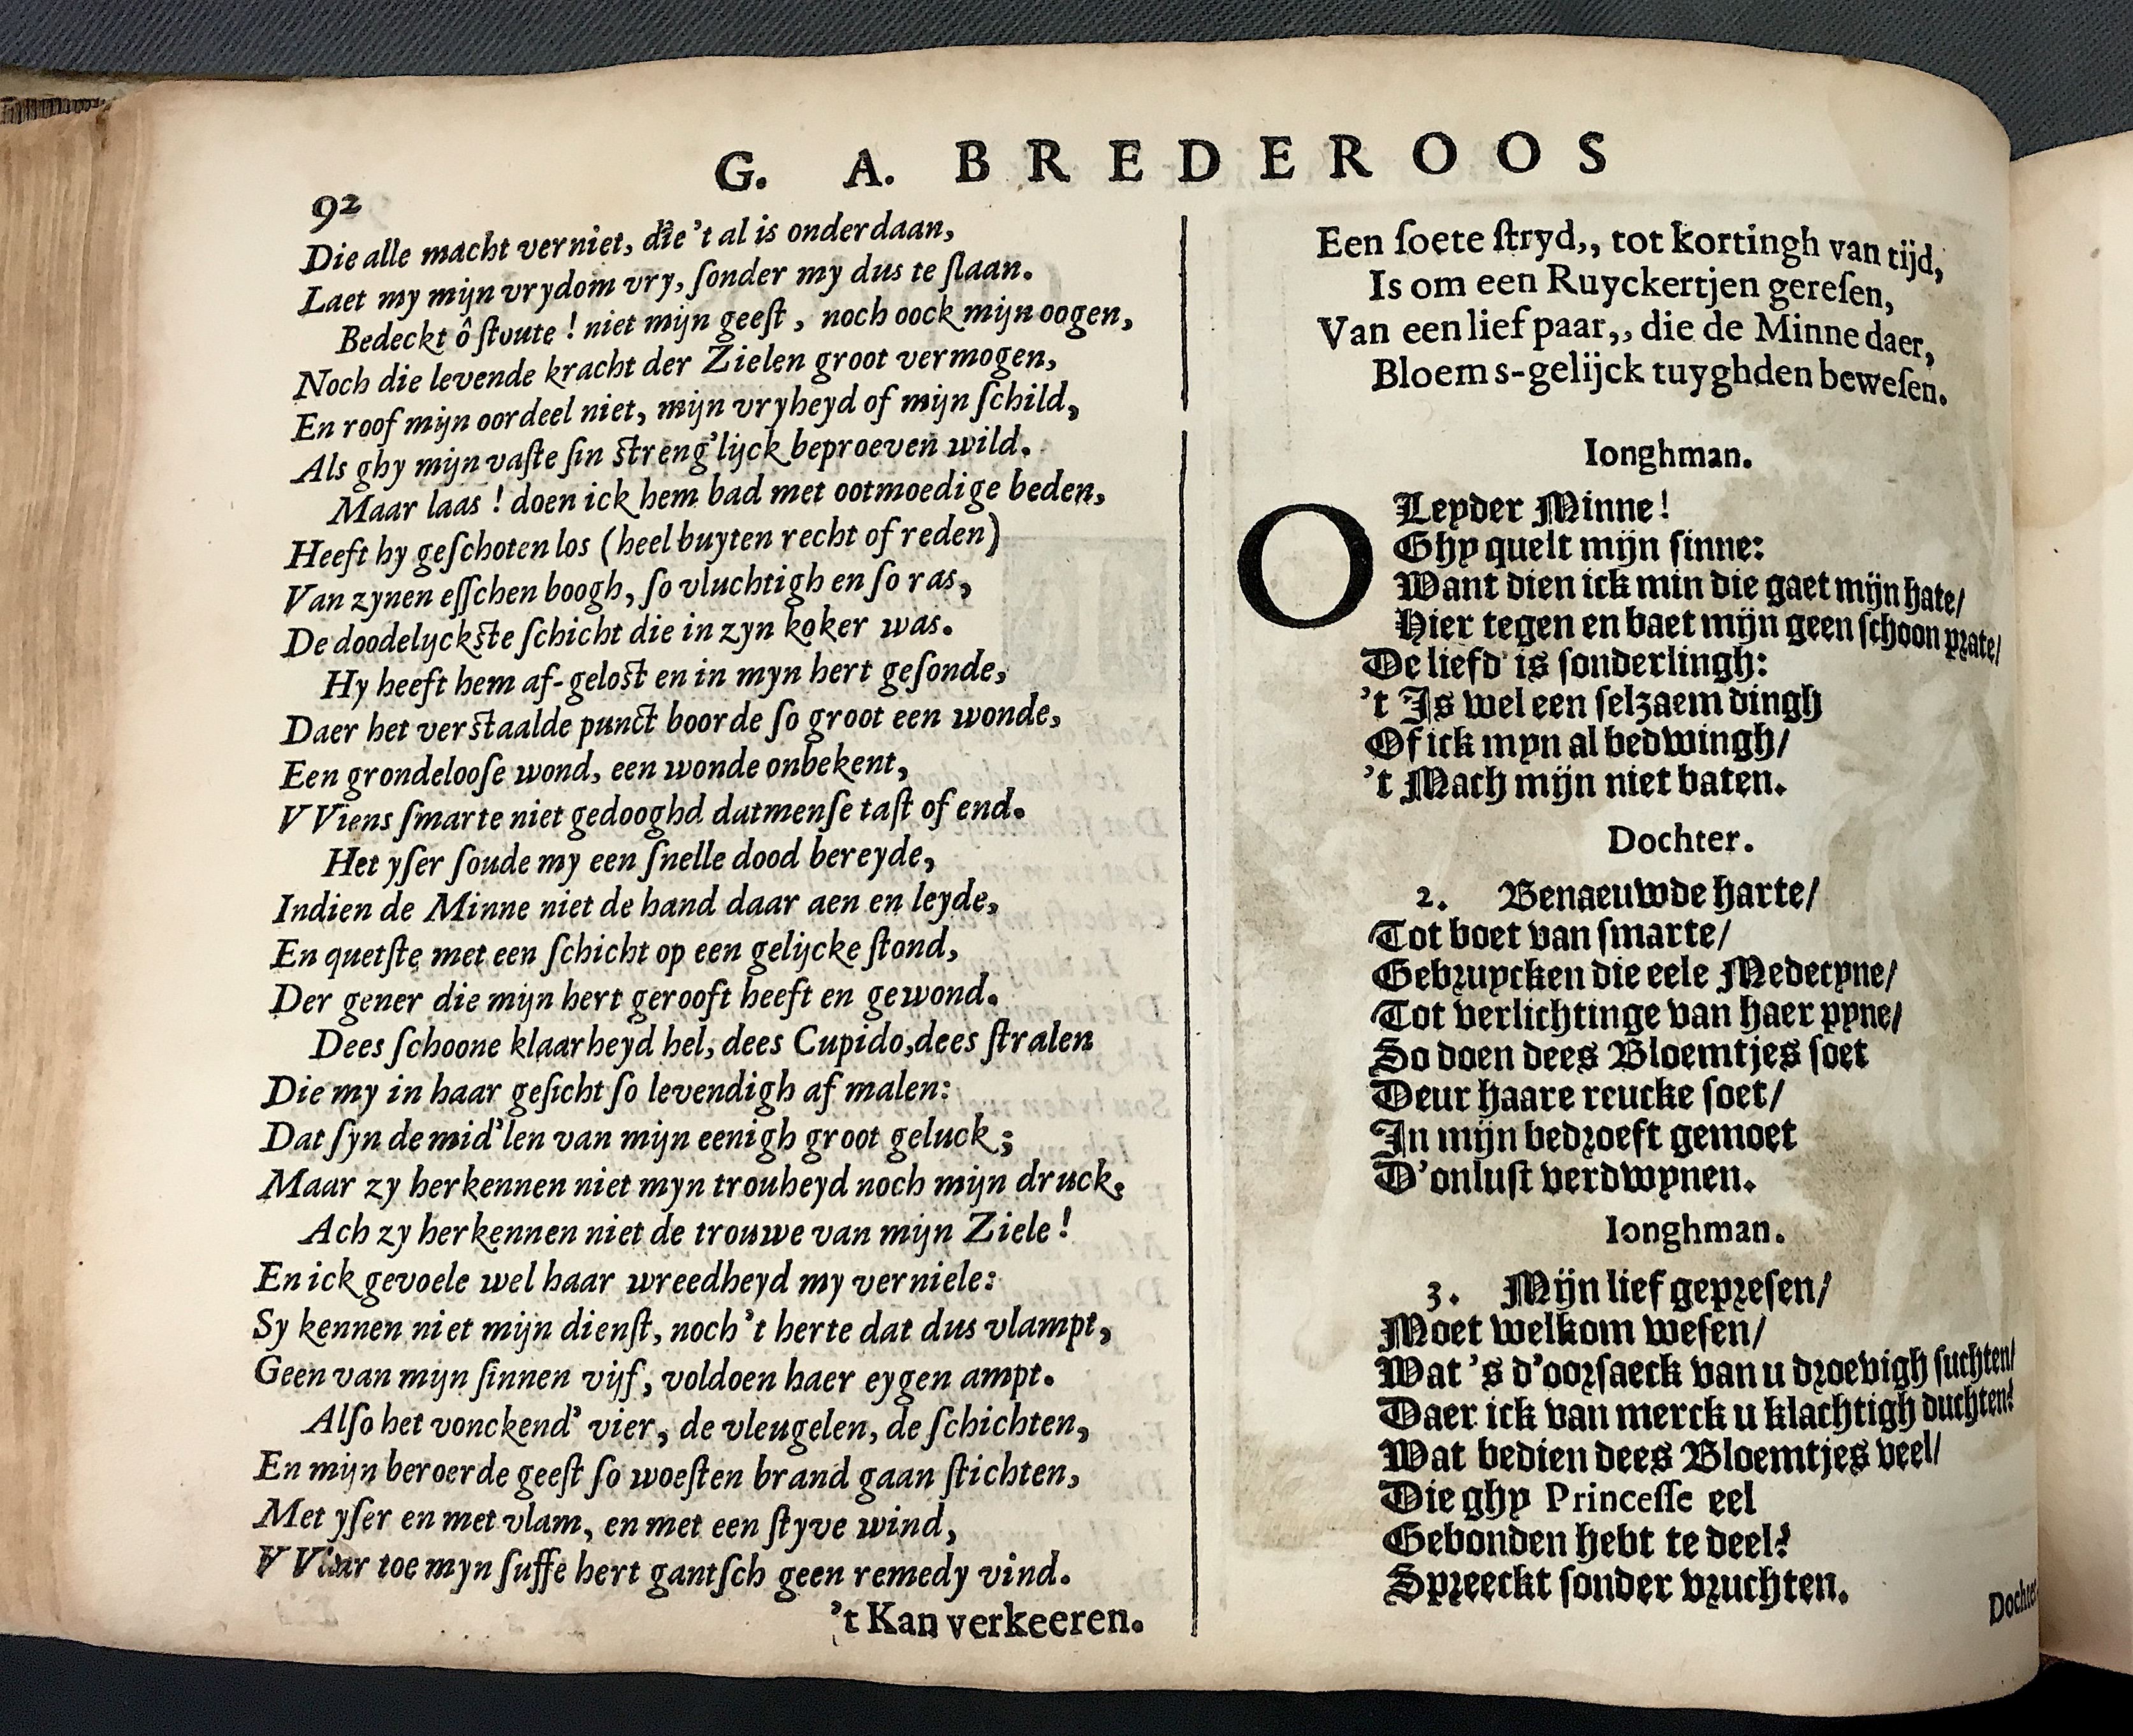 G. A. BREDEROOS
92
Die alle macht verniet, die 't al is onderdaan,
Laet my mijn vrydom vry, ſonder my dus te ſlaan.
Bedeckt ô ſtoute ! niet mijn geeſt , noch oock mijn oogen,
Noch die levende kracht der Zielen groot vermogen,
En roof mijn oordeel niet, mijn vryheyd of mijn ſchild,
Als ghy mijn vaſte ſin ſtreng'lijck beproeven wild.
Maar laas ! doen ick hem bad met ootmoedige beden,
Heeft hy geſchoten los (heel buyten recht of reden)
Van zynen eſſchen boogh, ſo vluchtigh en ſo ras,
De doodelyckſte ſchicht die in zyn koker was.
Hy heeft hem af-geloſt en in myn hert geſonde,
Daer het verſtaalde punct boorde ſo groot een wonde,
Een grondelooſe wond, een wonde onbekent,
VViens ſmarte niet gedooghd datmenſe taſt of end.
Het yſer ſoude my een ſnelle dood bereyde,
Indien de Minne niet de hand daar aen en leyde,
En quetſte met een ſchicht op een gelijcke ſtond,
Der gener die mijn hert gerooft heeft en gewond.
Dees ſchoone klaarheyd hel, dees Cupido, dees ſtralen
Die my in haar geſicht ſo levendigh af malen:
Dat ſyn de mid'len van mijn eenigh groot geluck ;
Maar zy herkennen niet myn trouheyd noch mijn druck.
Ach zy herkennen niet de trouwe van mijn Ziele !
En ick gevoele wel haar wreedheyd my verniele:
Sy kennen niet mijn dienſt, noch 't herte dat dus vlampt,
Geen van mijn ſinnen vijf, voldoen haer eygen ampt.
Alſo het vonckend' vier, de vleugelen, de ſchichten,
En mijn beroerde geeſt ſo woeſten brand gaan ſtichten,
Met yſer en met vlam, en met een ſtyve wind,
VVaar toe myn ſuffe hert gantſch geen remedy vind.
't Kan verkeeren.
Een ſoete ſtryd,, tot kortingh van tijd,
Is om een Ruyckertjen gereſen,
Van een lief paar,, die de Minne daer,
Bloems-gelijck tuyghden beweſen.
Ionghman.
O Leyder Minne!
Ghy quelt mijn ſinne:
Want dien ick min die gaet mijn hate/
Hier tegen en baet mijn geen ſchoon prate/
De liefd' is ſonderlingh:
't Is wel een ſelzaem dingh
Of ick myn al bedwingh/
't Mach mijn niet baten.
Dochter.
2. Benaeuwde harte/
Tot boet van ſmarte/
Gebruycken die eele Medecyne/
Tot verlichtinge van haer pyne/
So doen dees Bloemtjes ſoet
Deur haare reucke ſoet/
In mijn bedroeft gemoet
D'onluſt verdwynen.
Ionghman.
3. Mijn lief gepreſen/
Moet welkom weſen/
Wat 's d'oorſaeck van u droevigh ſuchten/
Daer ick van merck u klachtigh duchten?
Wat bedien dees Bloemtjes veel/
Die ghy Princeſſe eel
Gebonden hebt te deel?
Spreeckt ſonder vruchten.
Dochter